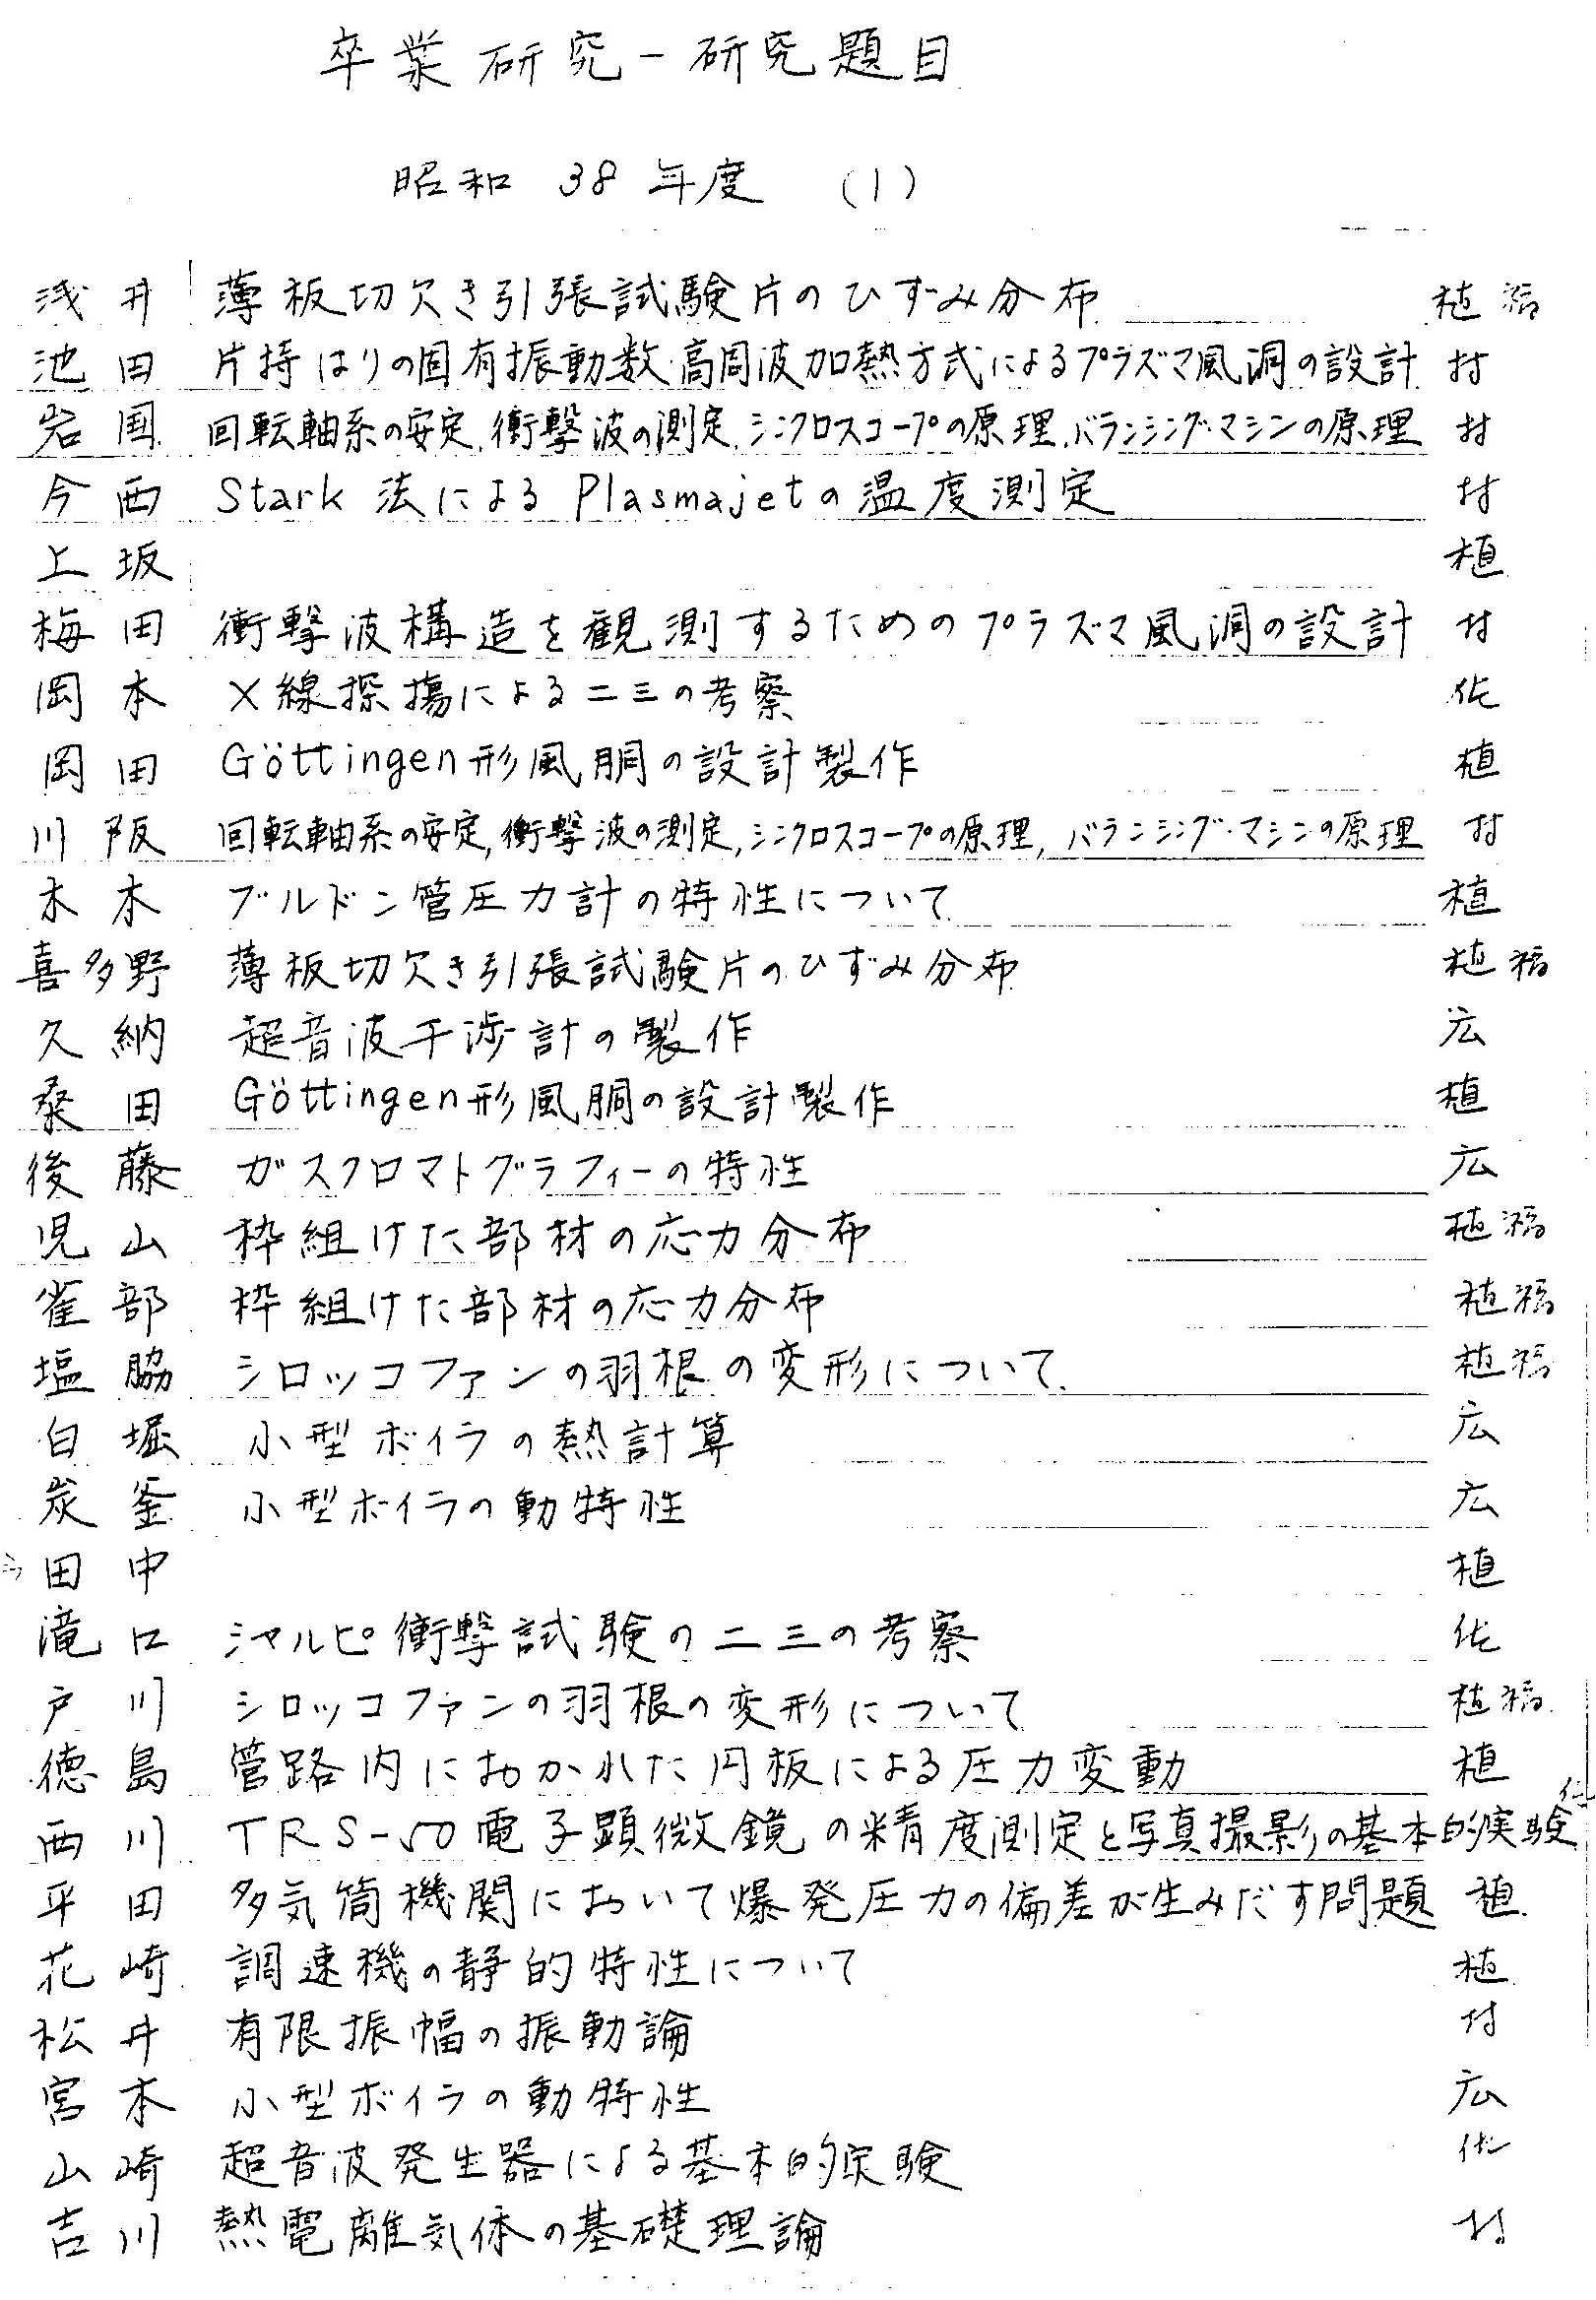 卒業研究－研究題目
昭和 38 年度 (1)
浅井 薄板切欠き引張試験片のひずみ分布 植 福
池田 片持はりの固有振動数・高周波加熱方式によるプラズマ風洞の設計 村
岩国 回転軸系の安定, 衝撃波の測定, シンクロスコープの原理, バランシング・マシンの原理 村
今西 Stark 法による Plasmajetの温度測定 村
上坂 植
梅田 衝撃波構造を観測するためのプラズマ風洞の設計 村
岡本 X線探傷による二三の考察 佐
岡田 Göttingen形風胴の設計製作 植
川阪 回転軸系の安定, 衝撃波の測定, シンクロスコープの原理, バランシング・マシンの原理 村
木本 ブルドン管圧力計の特性について 植
喜多野 薄板切欠き引張試験片のひずみ分布 植 福
久納 超音波干渉計の製作 広
桑田 Göttingen形風胴の設計製作 植
後藤 ガスクロマトグラフィーの特性 広
児山 枠組けた部材の応力分布 植 福
雀部 枠組けた部材の応力分布 植 福
塩脇 シロッコファンの羽根の変形について 植 福
白堀 小型ボイラの熱計算 広
炭釜 小型ボイラの動特性 広
田中 植
滝口 シャルピ衝撃試験の二三の考察 佐
戸川 シロッコファンの羽根の変形について 植 福
徳島 管路内におかれた円板による圧力変動 植
西川 TRS-50電子顕微鏡の精度測定と写真撮影の基本的実験 佐
平田 多気筒機関において爆発圧力の偏差が生みだす問題 植
花崎 調速機の静的特性について 植
松井 有限振幅の振動論 村
宮本 小型ボイラの動特性 広
山崎 超音波発生器による基本的実験 佐
吉川 熱電離気体の基礎理論 村